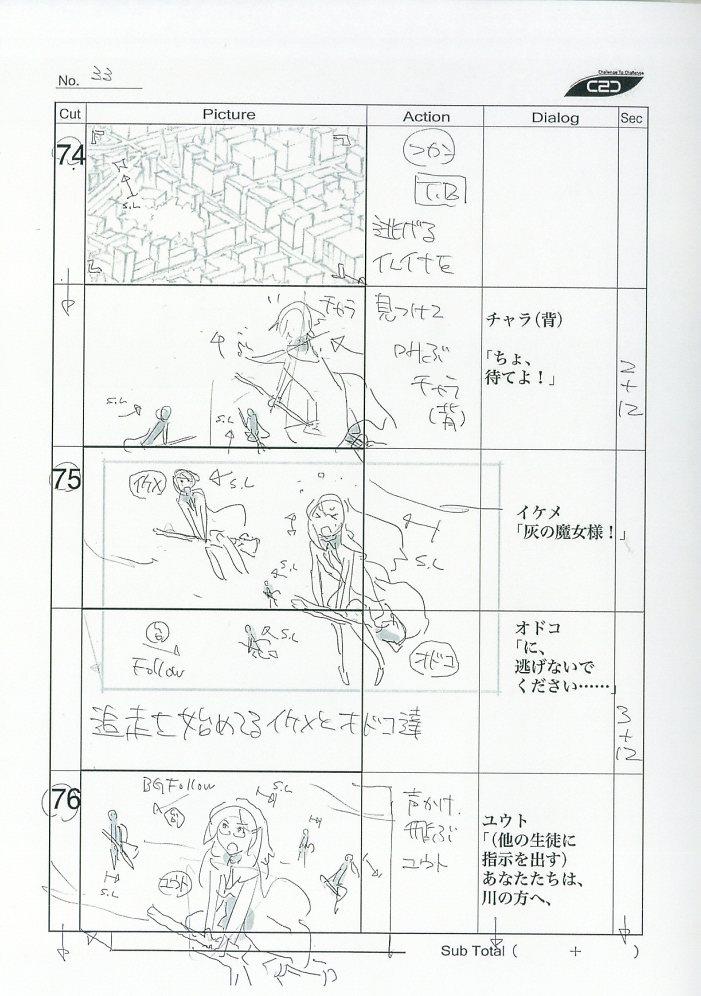 No. 33
Challenge To Challenge
C2C
Cut Picture Action Dialog Sec
74
つかう
T.B
逃げる
イレイナを
S.L
見つけて
叫ぶ
チャラ
(背)
チャラ
チャラ(背)
「ちょ、
待てよ！」
S.L
S.L
2+12
75
イケメ
S.L
S.L
S.L
イケメ
「灰の魔女様！」
Follow
S.L
オドコ
オドコ
「に、
逃げないで
ください……」
追走を始めてるイケメとオドコ達
3+12
76
BG Follow
S.L
S.L
ユウト
声かけ、
飛ぶ
ユウト
ユウト
「(他の生徒に
指示を出す)
あなたたちは、
川の方へ、
Sub Total ( + )